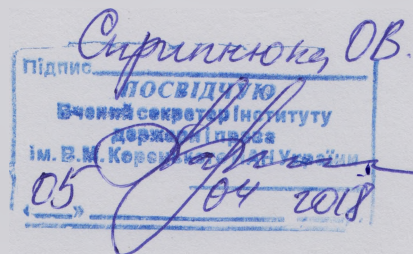 Скрипнюка О.В.
Підпис
ПОСВІДЧУЮ
Вчений секретар Інституту
держави і права
ім. В.М. України
05 04 2018